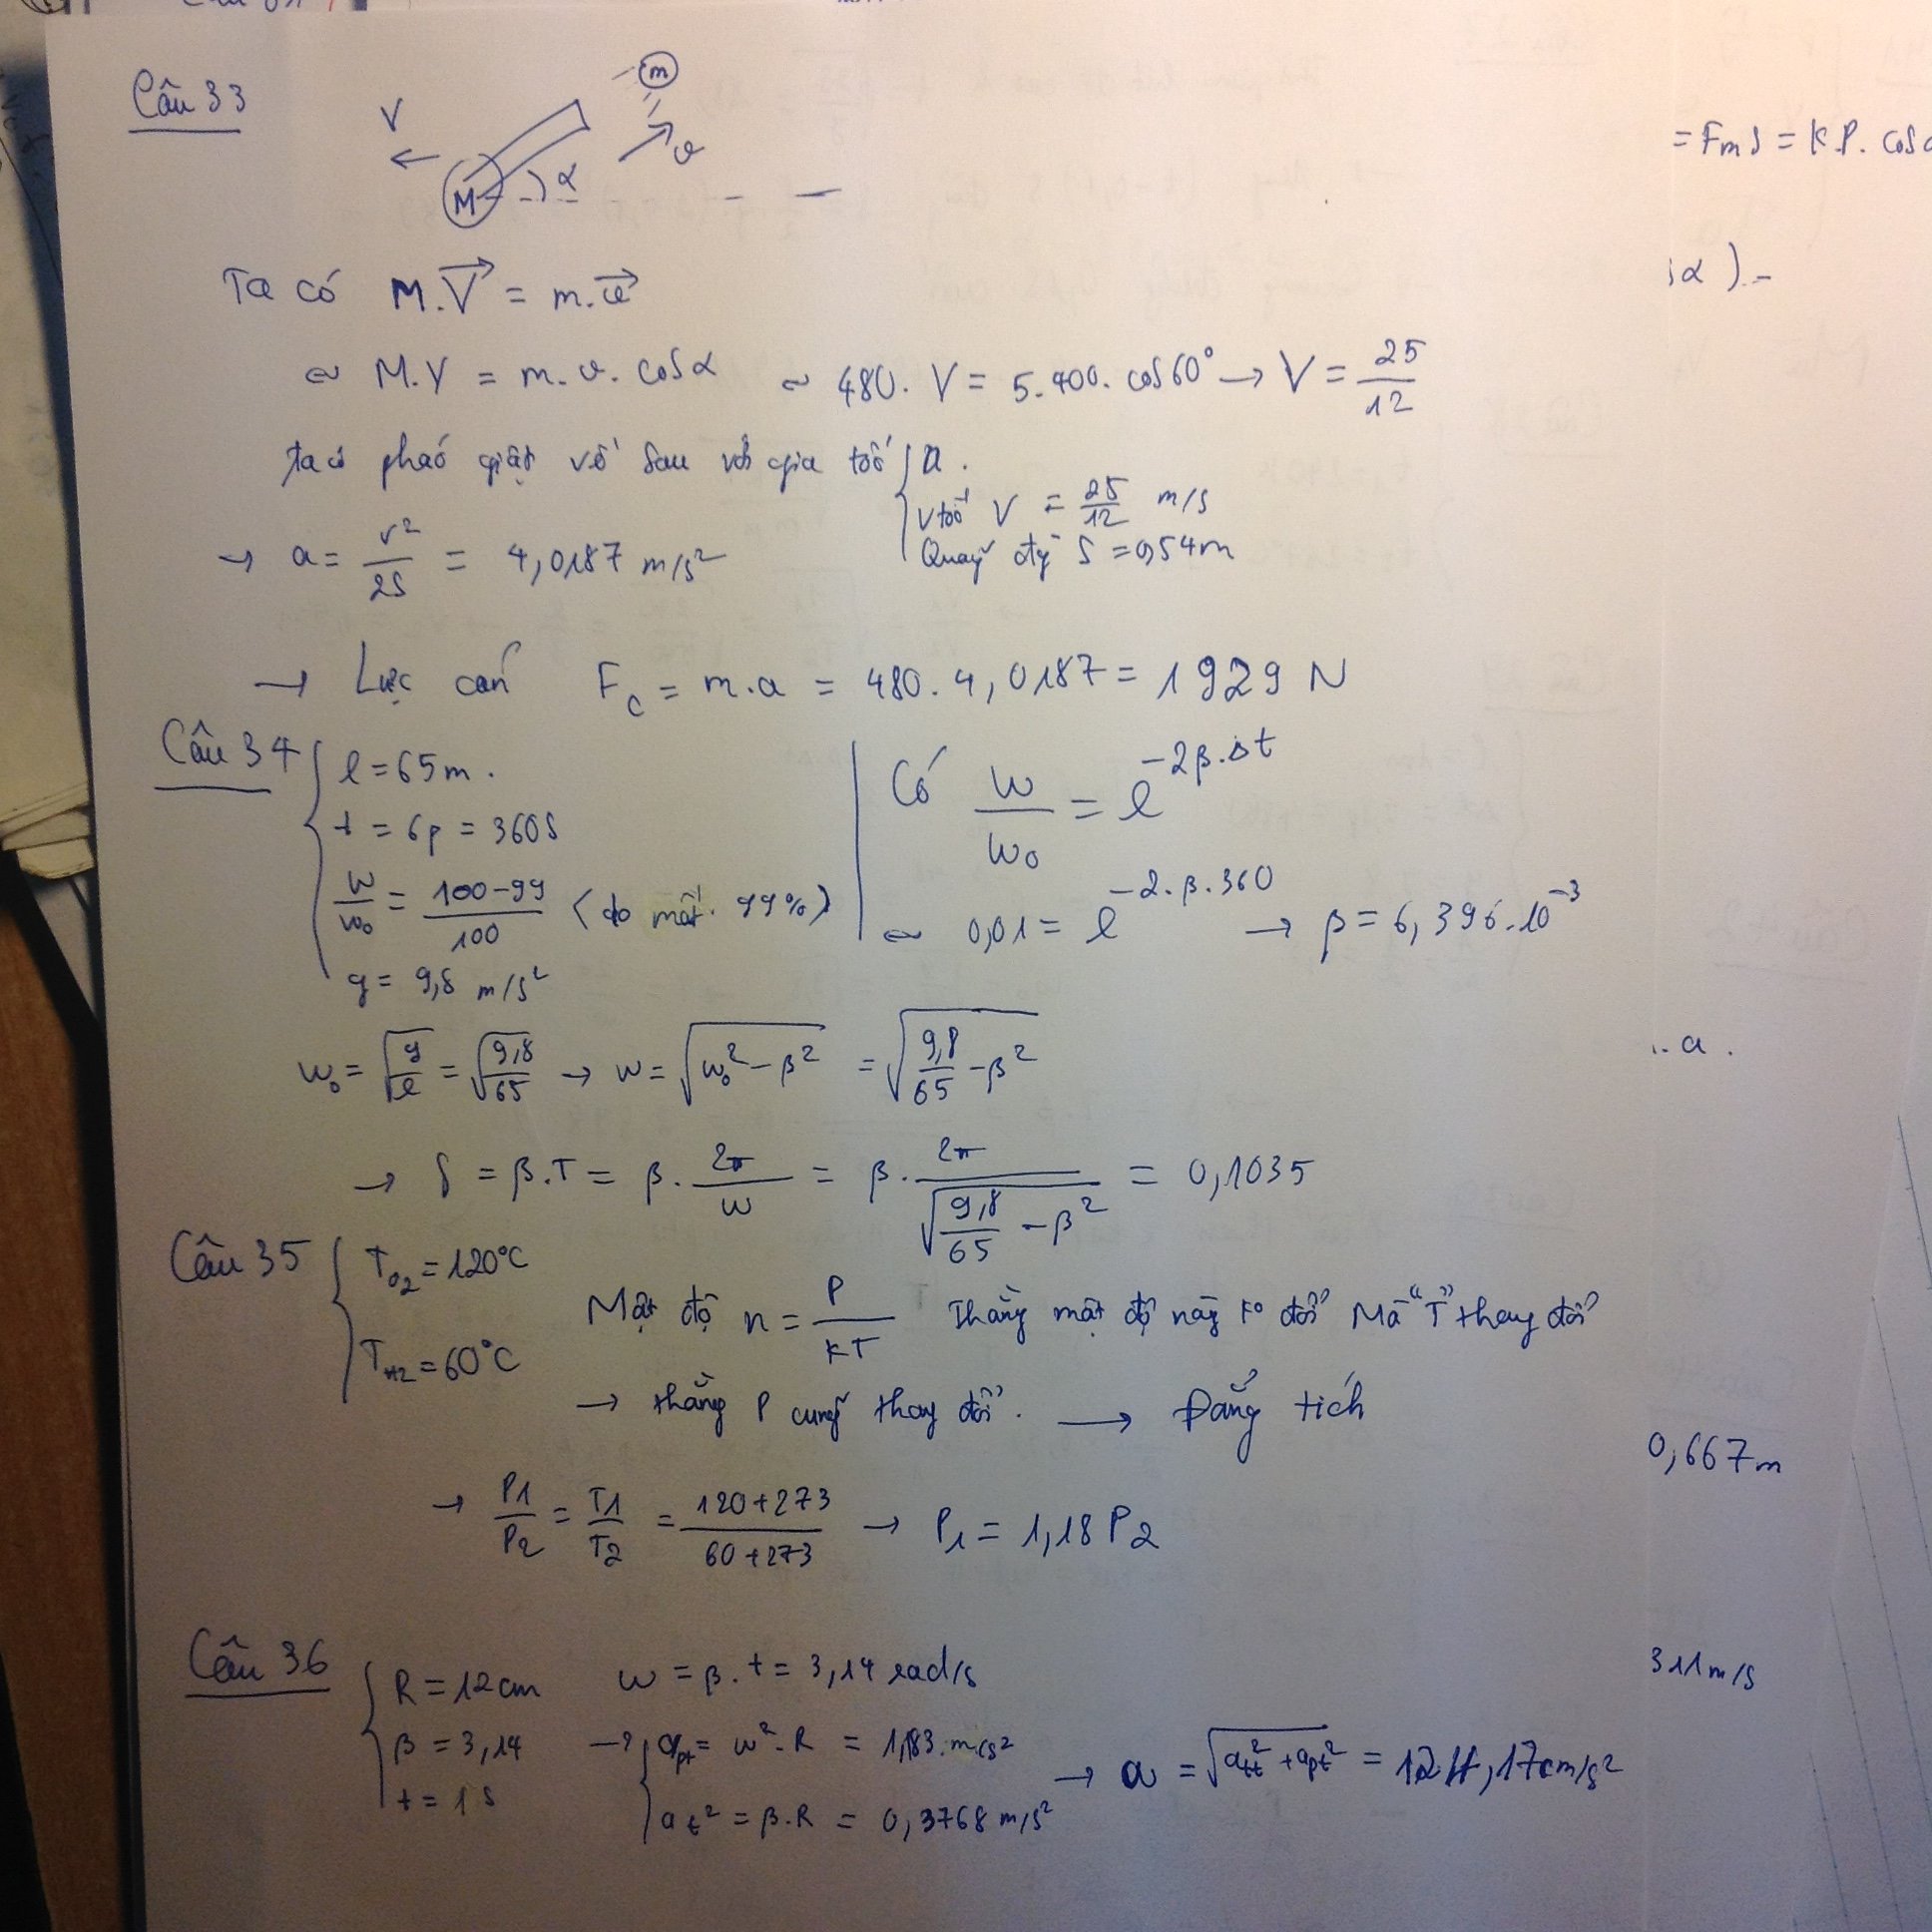 Câu 33
V
m
M
α
v
= Fm S = K.P. cos
α ).-
Ta có M.V = m.v
∾ M.V = m.v.cosα ∾ 480. V = 5.400. cos60° → V = 25/12
ta có pháo giật về sau với gia tốc { a.
Vtốc V = 25/12 m/s
Quãg đg S = 0,54m
→ a = v²/2S = 4,0187 m/s²
→ Lực cản Fc = m.a = 480.4,0187 = 1929 N
Câu 34 { l = 65m.
t = 6p = 360s
w/w₀ = (100-99)/100 (do mất 99%)
g = 9,8 m/s²
Có w/w₀ = e^(-2β.Δt)
∾ 0,01 = e^(-2.β.360) → β = 6,396.10⁻³
w₀ = √(g/l) = √(9,8/65) → w = √(w₀² - β²) = √(9,8/65 - β²)
. a .
→ δ = β.T = β. 2π/w = β. 2π/√(9,8/65 - β²) = 0,1035
Câu 35 { T_O2 = 120°C
T_H2 = 60°C
Mật độ n = P/KT Thằng mật độ này ko đổi Mà "T" thay đổi
→ thằng P cũng thay đổi. → Đẳng tích
0,667m
→ P1/P2 = T1/T2 = (120+273)/(60+273) → P1 = 1,18 P2
Câu 36 { R = 12cm
β = 3,14
t = 1s
w = β.t = 3,14 rad/s
311m/s
→ { a_pt = w².R = 1,183.m/s²
a_t² = β.R = 0,3768 m/s²
→ a = √(a_tt² + a_pt²) = 124,17cm/s²